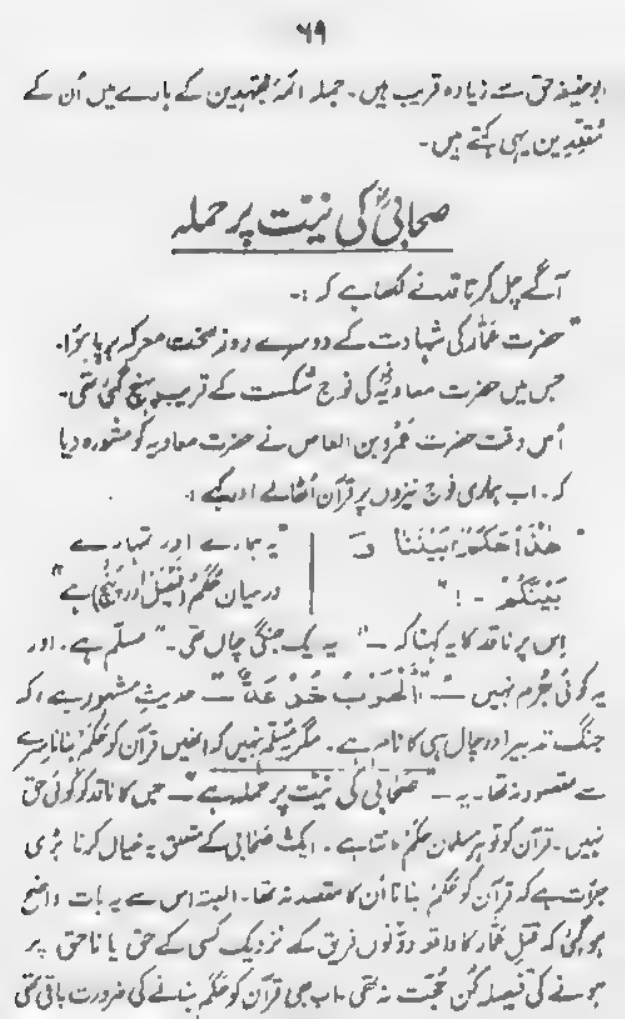 ۶۹
ابوحنیفہ حق سے زیادہ قریب ہیں۔ جملہ ائمۂ مجتہدین کے بارے میں اُن کے
مُعتقِدین یہی کہتے ہیں۔
صحابیؓ کی نیت پر حملہ
آگے چل کر ناقد نے لکھا ہے کہ :۔
"حضرت عمّار کی شہادت کے دوسرے روز سخت معرکہ برپا ہُوا۔
جس میں حضرت معاویہؓ کی فوج شکست کے قریب پہنچ گئی تھی۔
اُس وقت حضرت عَمرو بن العاص نے حضرت معاویہ کو مشورہ دیا
کہ۔ اب ہماری فوج نیزوں پر قرآن اُٹھالے اور کہے :
"هٰذَا حَكَمٌ بَيْنَنَا وَ "یہ ہمارے اور تمہارے
بَيْنَكُمْ - ! " درمیان حُکَم (فَیصَل اور پَنْچ) ہے"
اِس پر ناقد کا یہ کہنا کہ — " یہ یک جنگی چال تھی۔" مسلّم ہے۔ اور
یہ کوئی جُرم نہیں — "اَلْحَرْبُ خُدْعَةٌ" — حدیثِ مشہور ہے۔ کہ
جنگ تدبیر اور چال ہی کا نام ہے۔ مگر یہ مسلّم نہیں کہ انھیں قرآن کو حَکَمْ بنانا سِرے
سے مقصود نہ تھا۔ یہ — "صَحَابی کی نیّت پر حملہ ہے" — جس کا ناقد کو کوئی حق
نہیں۔ قرآن کو تو ہر مسلمان حکَمْ مانتا ہے۔ ایک صَحَابی کے متعلق یہ خیال کرنا بڑی
جرأت ہے کہ قرآن کو حَکَمْ بنانا اُن کا مقصد نہ تھا۔ البتہ اس سے یہ بات واضح
ہو گئی کہ قتلِ عَمّار کا واقعہ دونوں فریق کے نزدیک کسی کے حق یا ناحق پر
ہونے کی فیصلہ کُن حُجّت نہ تھی۔ اب بھی قرآن کو حَکَمْ بنانے کی ضرورت باقی تھی